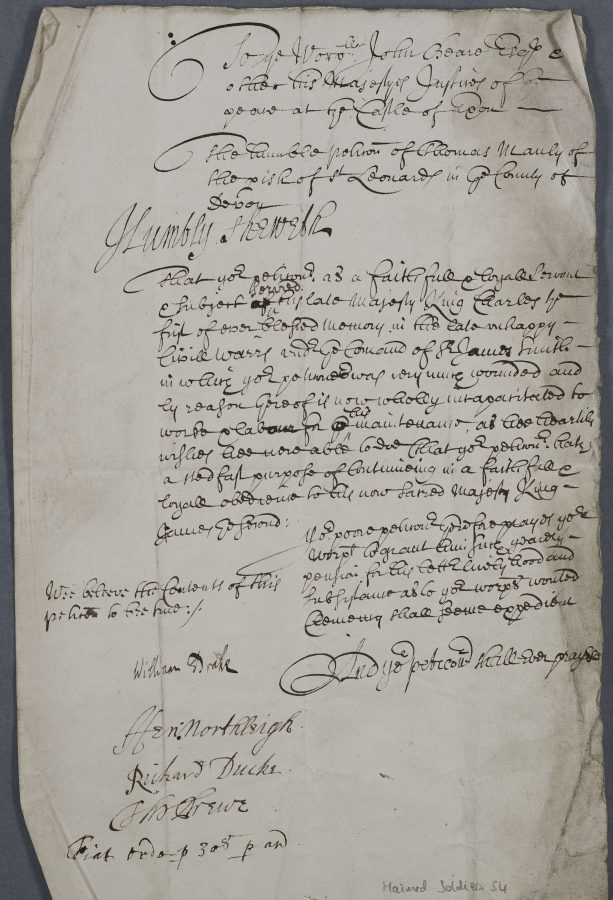 To ye Worpll John Beare Esqr &
other his Majestyes Justices of ye
peace at the Castle of Exon
The humble peticon of Thomas Manly of
the pish of St Leonards in ye County of
Devon
Humbly Sheweth
That yor peticonr as a faithfull & loyall Servant
& Subject served his late Majesty King Charles the
first of ever blessed memory in the late unhappy
Civill Warrs under ye Comand of Sr James Smith
in which yor peticonr was very much wounded and
by reason thereof is now wholly incapacitated to
worke & labour for his maintenance, as hee heartily
wishes hee were able to doe That yor peticonr hath
a stedfast purpose of Continueing in a faithfull &
loyall obedience to his now Sacred Majesty King
James ye Second:
Yor poore peticonr therefore prayes yor
Worps to grant him such yearly
pension for his better livelyhood and
Subsistance as to yor worps wonted
Clemency shall seeme expedient
Wee beleeve the Contents of this
peticon to bee true:/.
And yor peticonr shall ever pray &c
William Drake
Hen: Northleigh
Richard Ducke
Tho Drewe
Fiat ordr p 30s p and
Maimed Soldiers 54